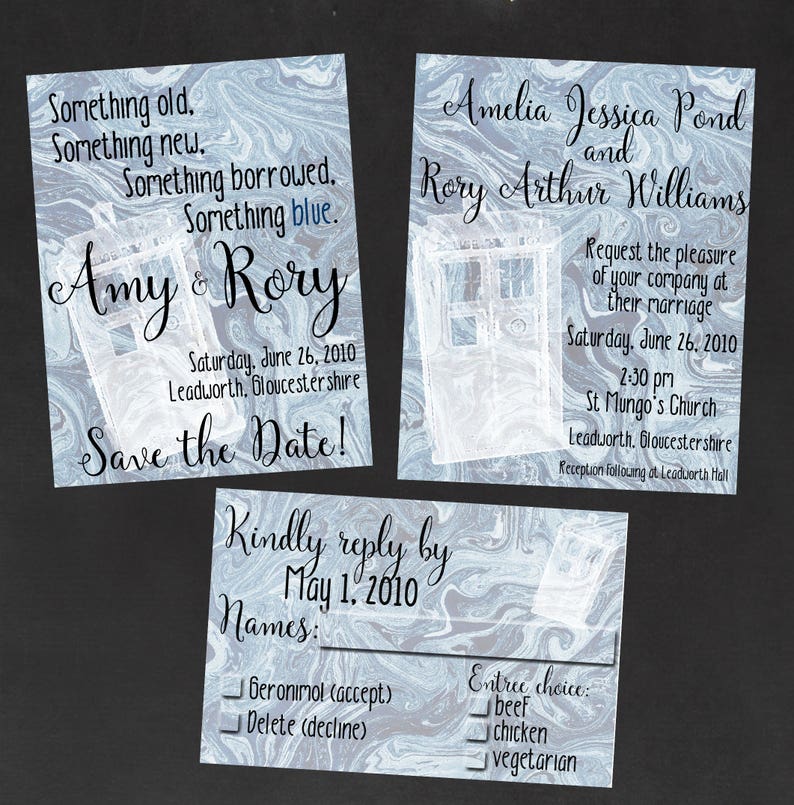 Something old,
Something new,
Something borrowed,
Something blue.
Amy & Rory
Saturday, June 26, 2010
Leadworth, Gloucestershire
Save the Date!
Amelia Jessica Pond
and
Rory Arthur Williams
Request the pleasure
of your company at
their marriage
Saturday, June 26, 2010
2:30 pm
St Mungo's Church
Leadworth, Gloucestershire
Reception following at Leadworth Hall
Kindly reply by
May 1, 2010
Names:
Geronimo! (accept)
Delete (decline)
Entree choice:
beef
chicken
vegetarian